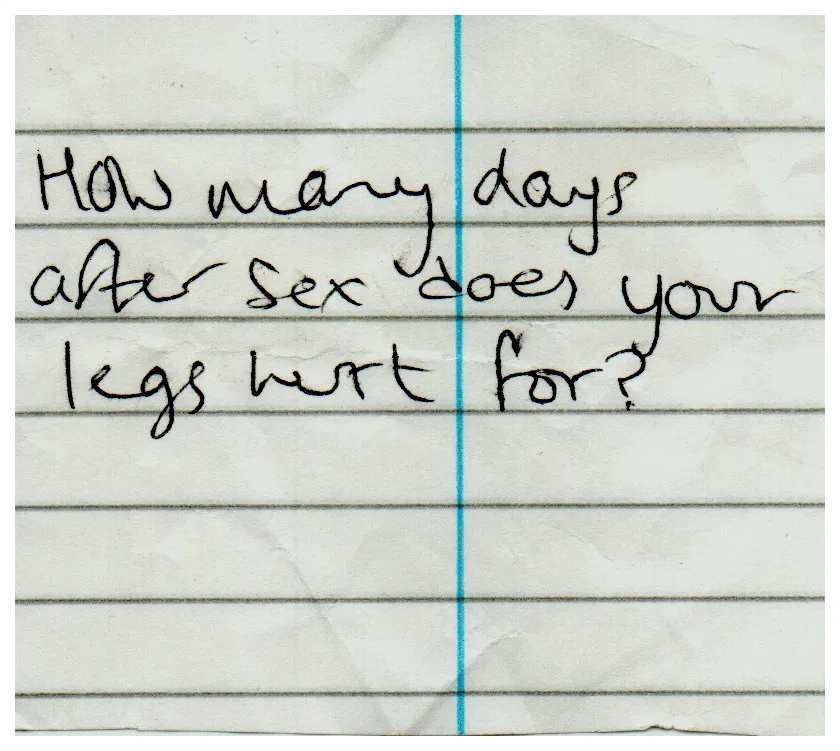 How many days
after sex does your
legs hurt for?